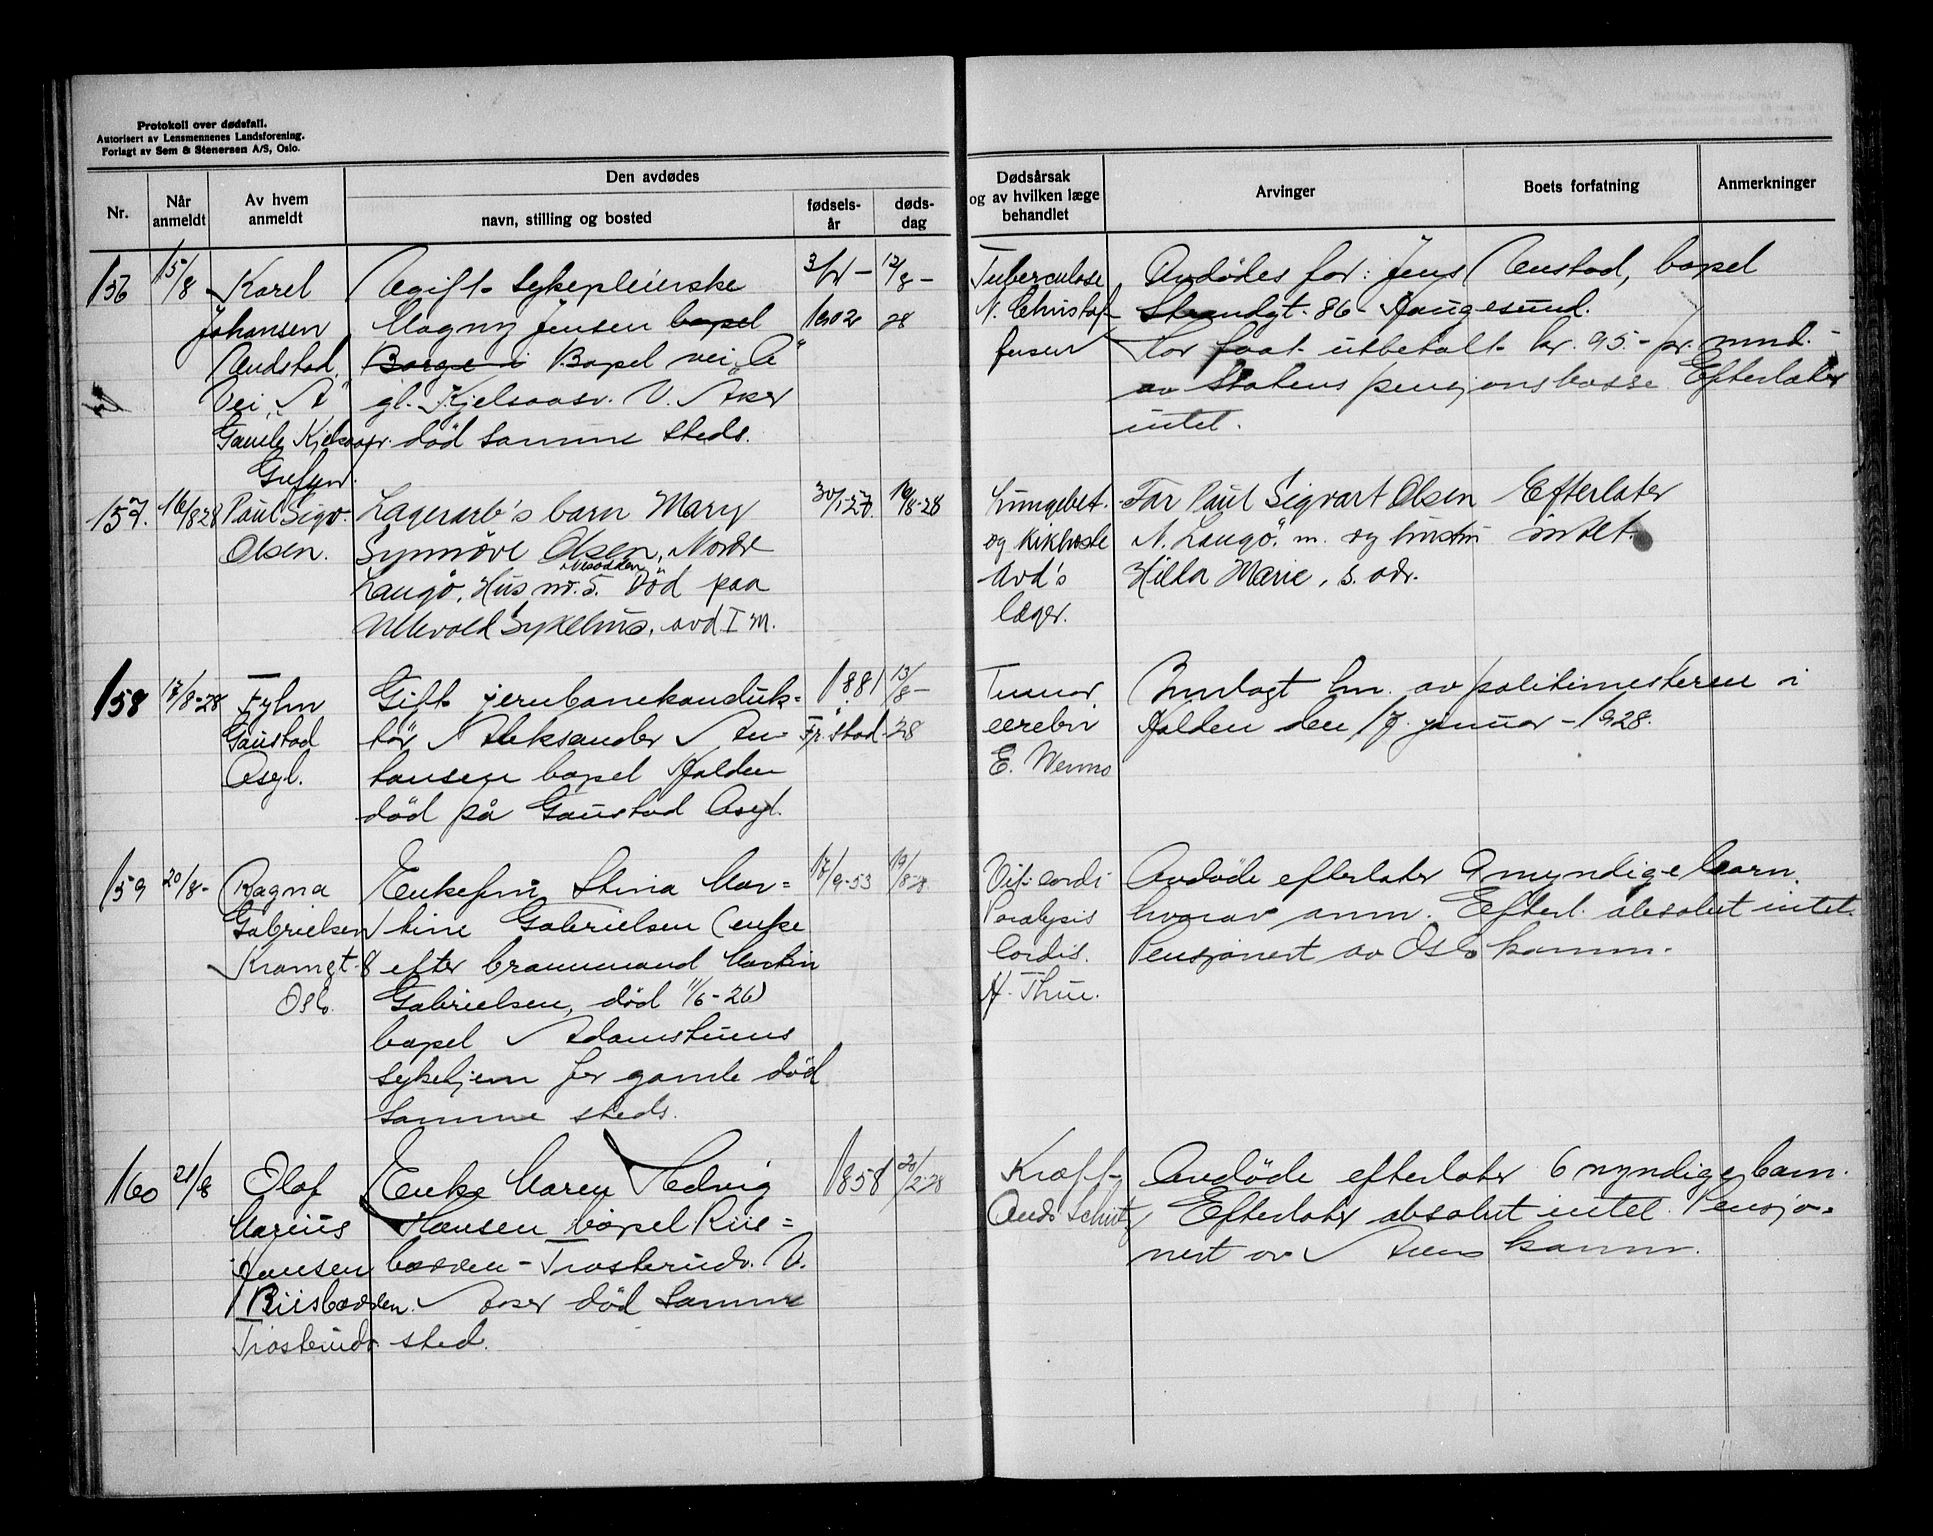 Protokoll over dødsfall.
Autorisert av Lensmennenes Landsforening.
Forlagt av Sem & Stenersen A/S, Oslo.
Nr.
Når anmeldt
Av hvem anmeldt
Den avdødes
navn, stilling og bosted
fødsels-år
døds-dag
Dødsårsak og av hvilken læge behandlet
Arvinger
Boets forfatning
Anmerkninger
156
15/8
Karel
Johansen
Vei A
Gamle Kjelsaasv.
Grefsen.
Ugift Sykepleierske
Magny Jensen bopel
Borge i Bopel vei A
gl. Kjelsaasv. V. Aker
død samme steds.
1902
12/8-
28
Tuberculose
N. Christof-
fersen
Avdødes far: Jens Anstad, bopel
Strandgt. 86 Haugesund.
Har faat utbetalt kr. 95.- pr. mnd.
av Statens pensjonskasse. Efterlater
intet.
157.
16/8 28
Paul Sigv.
Olsen.
Lagerarb's barn Mary
Synnøve Olsen, Nordre
Langø, Hus nr. 5. Død paa
Ullevold Sykehus, avd. I M.
30/1-27.
16/8-28
Lungebet.
og Kikhoste
Avd's
læger.
Far Paul Sigvart Olsen
N. Langø, m. og hustru
Hilda Marie, s. adr.
Efterlater
intet.
158
17/8-28
Gaustad
Asyl.
Gift jernbanekonduk-
tør Aleksander An-
tonsen bopel Halden
død på Gaustad Asyl.
1881
Fr.stad
13/8-
28
Tumor
cerebri
E. Wenno
Innlagt hn. av politimesteren i
Halden den 17. januar - 1928.
159
20/8-
Ragna
Gabrielsen
Kromgt. 8
Oslo.
Enkefru Stina Mar-
tine Gabrielsen (enke
efter brannmand Martin
Gabrielsen, død 11/6-26)
bopel Adamstuens
sykehjem for gamle død
samme steds.
17/9-53
19/8-28
Vit. cordis
Paralysis
Cordis.
H. Thue.
Avdøde efterlater 9 myndige barn.
hvorav anm. Efterl. absolut intet.
Pensjonert av Oslo komm.
160
21/8
Olaf
Marius
Hansen
Riisbodden.
Trosterudv.
Enke Maren Hedvig
Hansen bopel Riis-
bodden - Trosterudv. V.
Aker død samme
sted.
1858
20/2-28
Kræft
Ands Schutz
Avdøde efterlater 6 myndige barn.
Efterlater absolut intet. Pensjo-
nert av Akers komm.